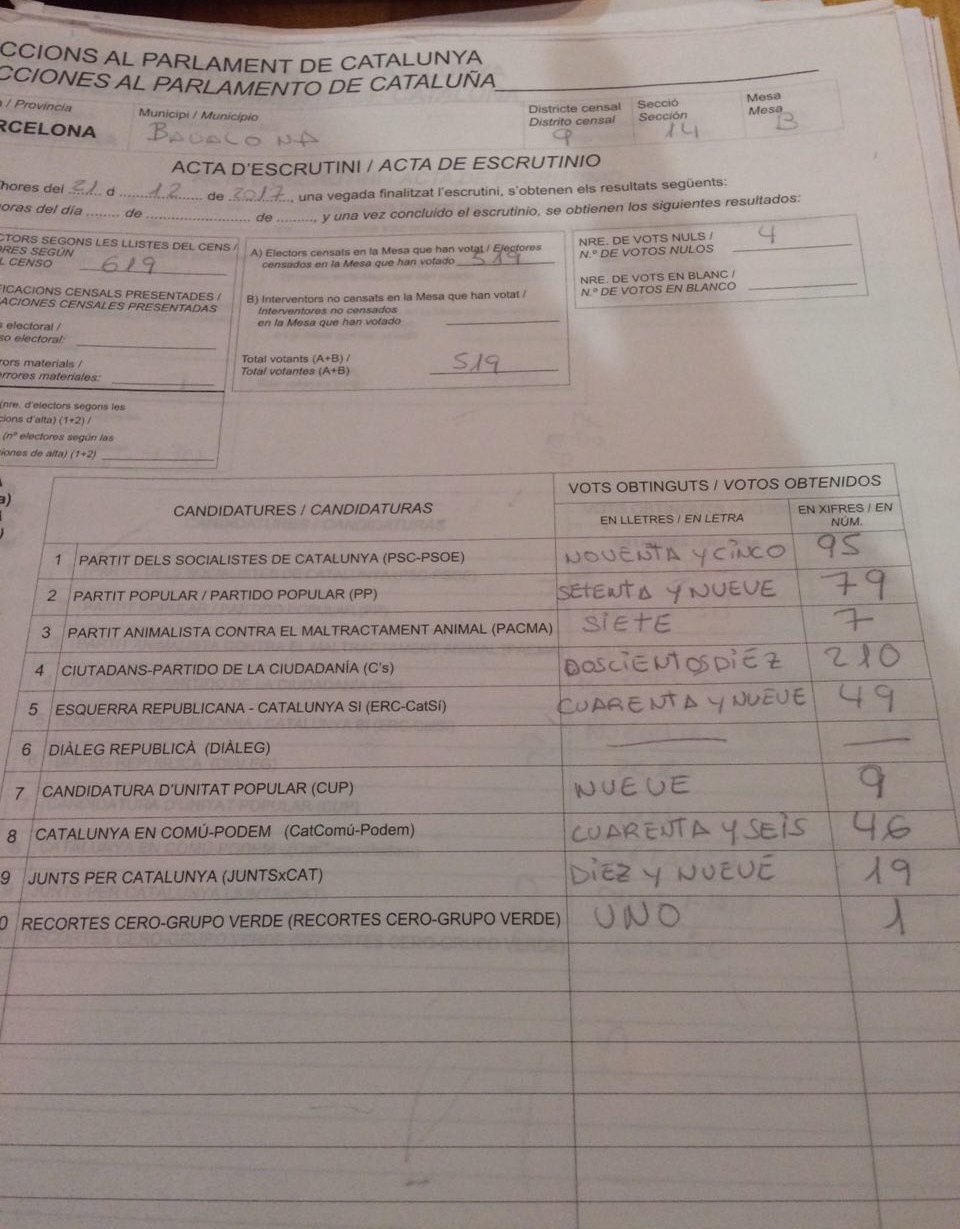 CCIONS AL PARLAMENT DE CATALUNYA
CCIONES AL PARLAMENTO DE CATALUÑA
/ Provincia
RCELONA
Municipi / Municipio
BADALONA
Districte censal
Distrito censal
9
Secció
Sección
14
Mesa
Mesa
B
ACTA D'ESCRUTINI / ACTA DE ESCRUTINIO
hores del 21 d 12 de 2017, una vegada finalitzat l'escrutini, s'obtenen els resultats següents:
oras del día ........ de ........................ de ........, y una vez concluido el escrutinio, se obtienen los siguientes resultados:
CTORS SEGONS LES LLISTES DEL CENS /
ORES SEGÚN
L CENSO 619
FICACIONS CENSALS PRESENTADES /
ACIONES CENSALES PRESENTADAS
s electoral /
so electoral:
rors materials /
errores materiales:
(nre. d'electors segons les
cions d'alta) (1+2) /
(nº electores según las
iones de alta) (1+2)
A) Electors censats en la Mesa que han votat / Electores
censados en la Mesa que han votado 519
B) Interventors no censats en la Mesa que han votat /
Interventores no censados
en la Mesa que han votado
Total votants (A+B) /
Total votantes (A+B) 519
NRE. DE VOTS NULS /
N.º DE VOTOS NULOS 4
NRE. DE VOTS EN BLANC /
N.º DE VOTOS EN BLANCO
a)
)
CANDIDATURES / CANDIDATURAS
VOTS OBTINGUTS / VOTOS OBTENIDOS
EN LLETRES / EN LETRA
EN XIFRES / EN
NÚM.
1 PARTIT DELS SOCIALISTES DE CATALUNYA (PSC-PSOE) NOVENTA Y CINCO 95
2 PARTIT POPULAR / PARTIDO POPULAR (PP) SETENTA Y NUEVE 79
3 PARTIT ANIMALISTA CONTRA EL MALTRACTAMENT ANIMAL (PACMA) SIETE 7
4 CIUTADANS-PARTIDO DE LA CIUDADANÍA (C's) DOSCIENTOS DIEZ 210
5 ESQUERRA REPUBLICANA - CATALUNYA SI (ERC-CatSí) CUARENTA Y NUEVE 49
6 DIÀLEG REPUBLICÀ (DIÀLEG) — —
7 CANDIDATURA D'UNITAT POPULAR (CUP) NUEVE 9
8 CATALUNYA EN COMÚ-PODEM (CatComú-Podem) CUARENTA Y SEIS 46
9 JUNTS PER CATALUNYA (JUNTSxCAT) DIEZ Y NUEVE 19
0 RECORTES CERO-GRUPO VERDE (RECORTES CERO-GRUPO VERDE) UNO 1